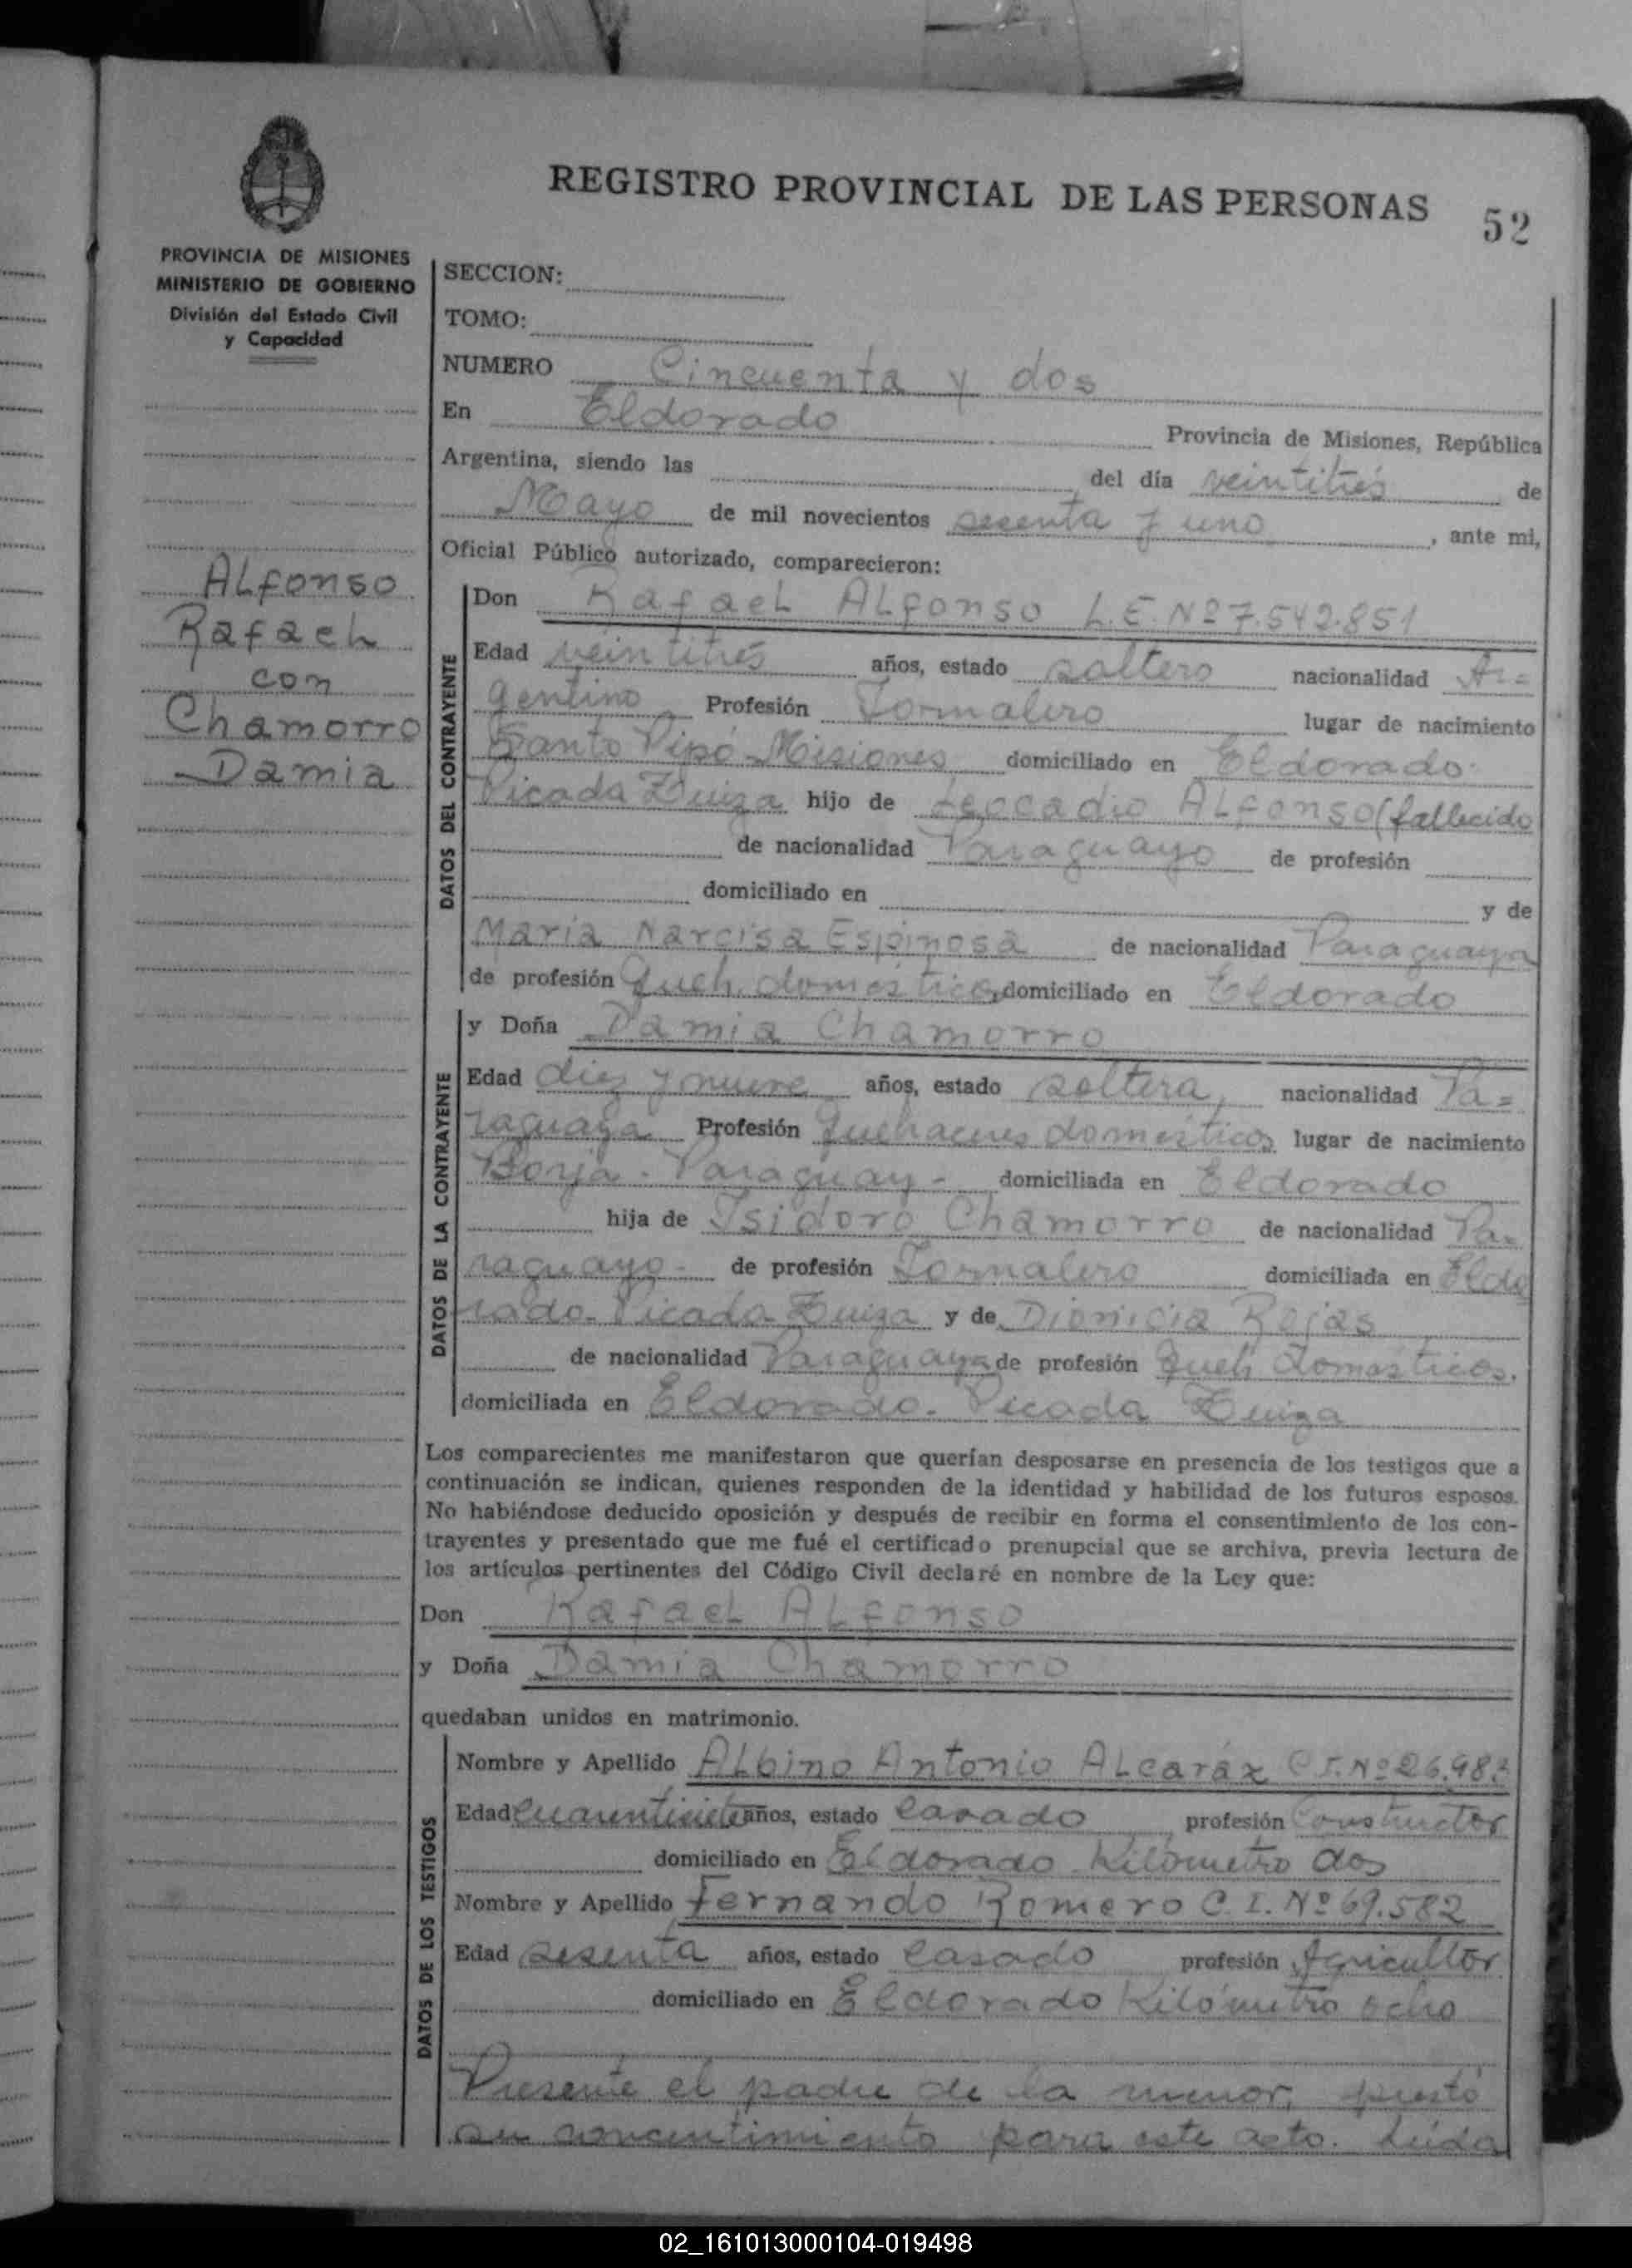 REGISTRO PROVINCIAL DE LAS PERSONAS 52
PROVINCIA DE MISIONES
MINISTERIO DE GOBIERNO
División del Estado Civil
y Capacidad
Alfonso
Rafael
con
Chamorro
Damia
SECCION:
TOMO:
NUMERO Cincuenta y dos
En Eldorado Provincia de Misiones, República
Argentina, siendo las del día veintitrés de
Mayo de mil novecientos sesenta y uno, ante mi,
Oficial Público autorizado, comparecieron:
DATOS DEL CONTRAYENTE
Don Rafael Alfonso L.E. Nº 7.542.851
Edad veintitrés años, estado soltero nacionalidad Ar=
gentino Profesión Jornalero lugar de nacimiento
Santo Pipó-Misiones domiciliado en Eldorado.
Picada Zuiza hijo de Leocadio Alfonso (fallecido
de nacionalidad Paraguayo de profesión
domiciliado en y de
Maria Narcisa Espinosa de nacionalidad Paraguaya
de profesión Queh. domésticos, domiciliado en Eldorado
DATOS DE LA CONTRAYENTE
y Doña Damia Chamorro
Edad diez y nueve años, estado soltera, nacionalidad Pa=
raguaya Profesión Quehaceres domésticos lugar de nacimiento
Borja - Paraguay - domiciliada en Eldorado
hija de Isidoro Chamorro de nacionalidad Pa=
raguayo - de profesión Jornalero domiciliada en Eldo
rado - Picada Zuiza y de Dionicia Rojas
de nacionalidad Paraguaya de profesión Queh domésticos.
domiciliada en Eldorado - Picada Zuiza
Los comparecientes me manifestaron que querían desposarse en presencia de los testigos que a
continuación se indican, quienes responden de la identidad y habilidad de los futuros esposos.
No habiéndose deducido oposición y después de recibir en forma el consentimiento de los con-
trayentes y presentado que me fué el certificado prenupcial que se archiva, previa lectura de
los artículos pertinentes del Código Civil declaré en nombre de la Ley que:
Don Rafael Alfonso
y Doña Damia Chamorro
quedaban unidos en matrimonio.
DATOS DE LOS TESTIGOS
Nombre y Apellido Albino Antonio Alcaráz C.I. Nº
Edad cuarentisiete años, estado casado profesión Constructor
domiciliado en Eldorado Kilómetro dos
Nombre y Apellido Fernando Romero C.I. Nº 69.582
Edad sesenta años, estado casado profesión Agricultor
domiciliado en Eldorado Kilómetro ocho
Presente el padre de la menor, prestó
su concentimiento para este acto. Leída
02_161013000104-019498